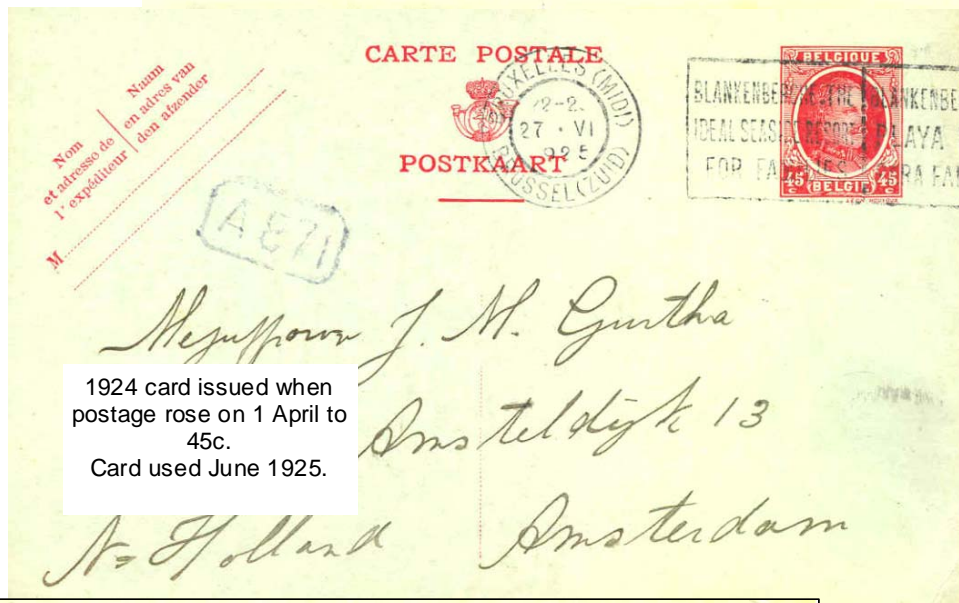 CARTE POSTALE
POSTKAART
Nom
et adresso de
l'expéditeur
Naam
en adres van
den afzender
M
BRUXELLES (MIDI)
27 · VI
1925
BRUSSEL (ZUID)
BLANKENBERGHE. THE
IDEAL SEASIDE RESORT
FOR FAMILIES
BLANKENBE
PLAYA
RA FA
BELGIQUE
45 c BELGIË 45 c
A 871
Mejuffrouw J. M.
Amsteldijk 13
Amsterdam
N. Holland
1924 card issued when
postage rose on 1 April to
45c.
Card used June 1925.